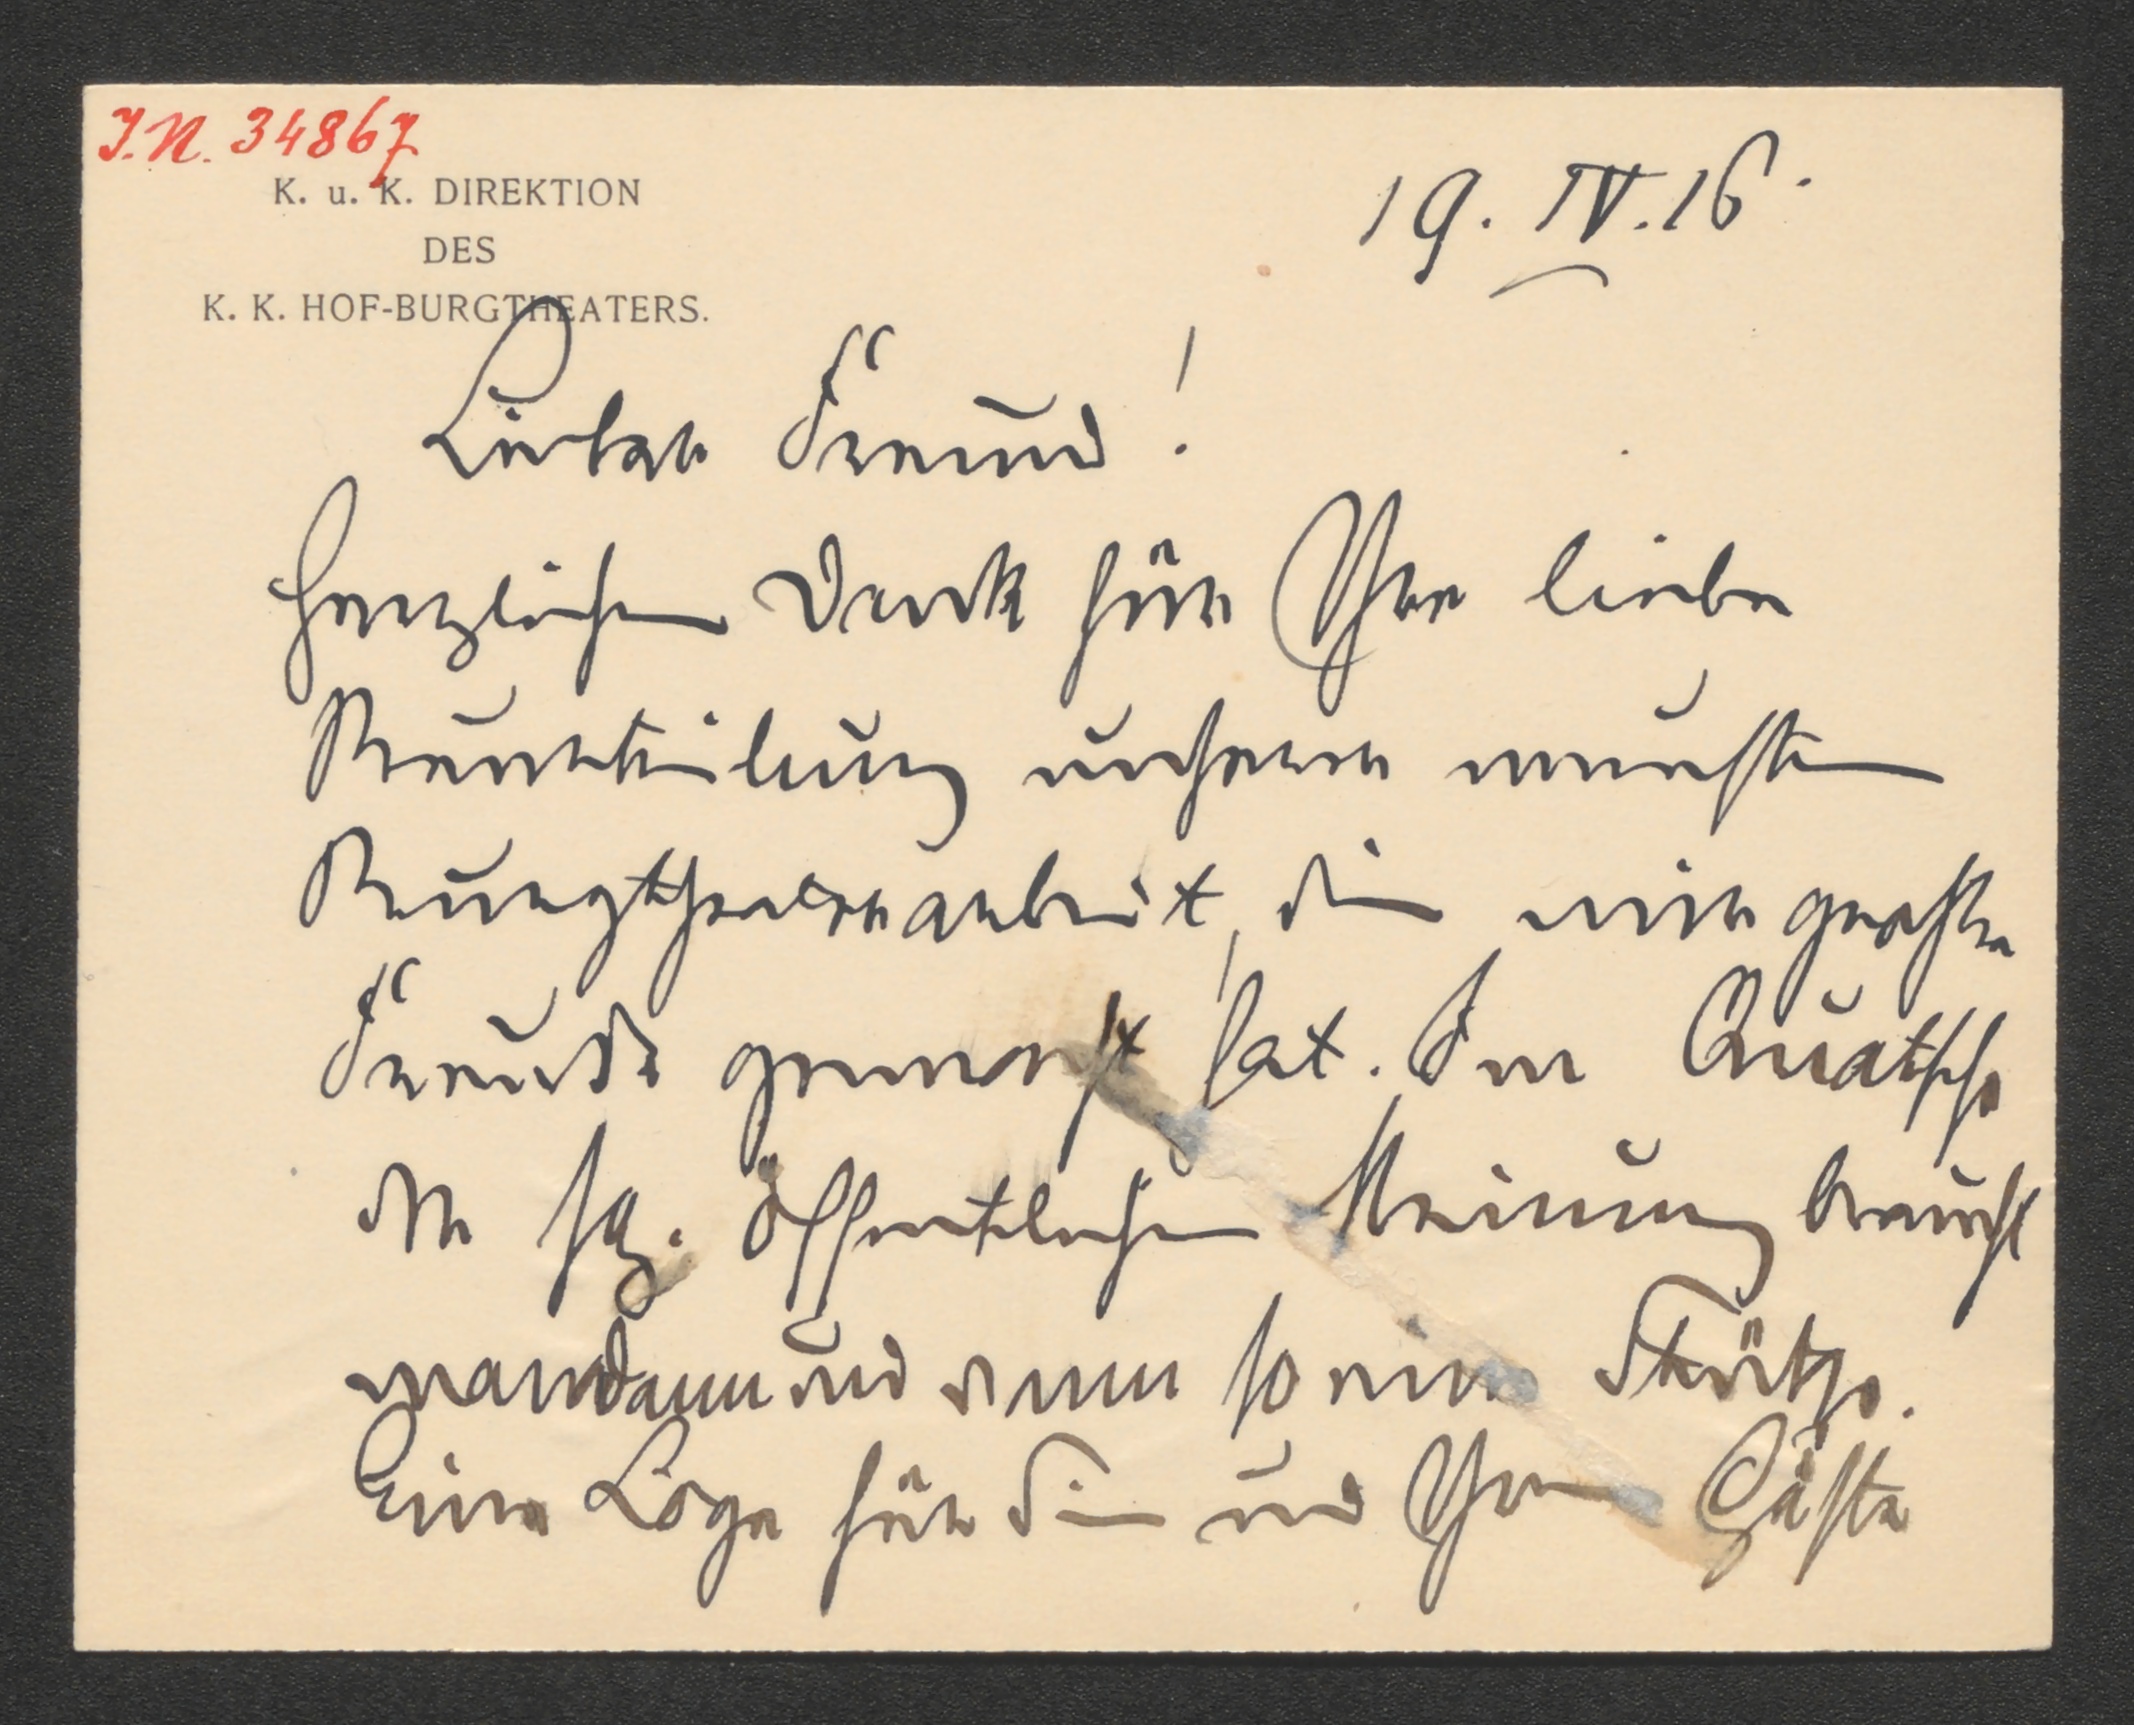 I.N. 34867
K. u. K. DIREKTION
DES
K. K. HOF-BURGTHEATERS.
19. IV. 16.
Lieber Freund!
Herzlichen Dank für Ihre liebe
Beurteilung unserer neuesten
Burgtheaterarbeit, die mir große
Freude gemacht hat. Im Quatsche
der sg. öffentlichen Meinung braucht
man dann und wann so eine Stütze.
Eine Loge für Sie und Ihre Gäste